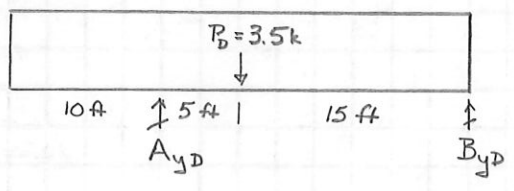 P_D = 3.5k
10 ft 5 ft 15 ft
A_yD B_yD